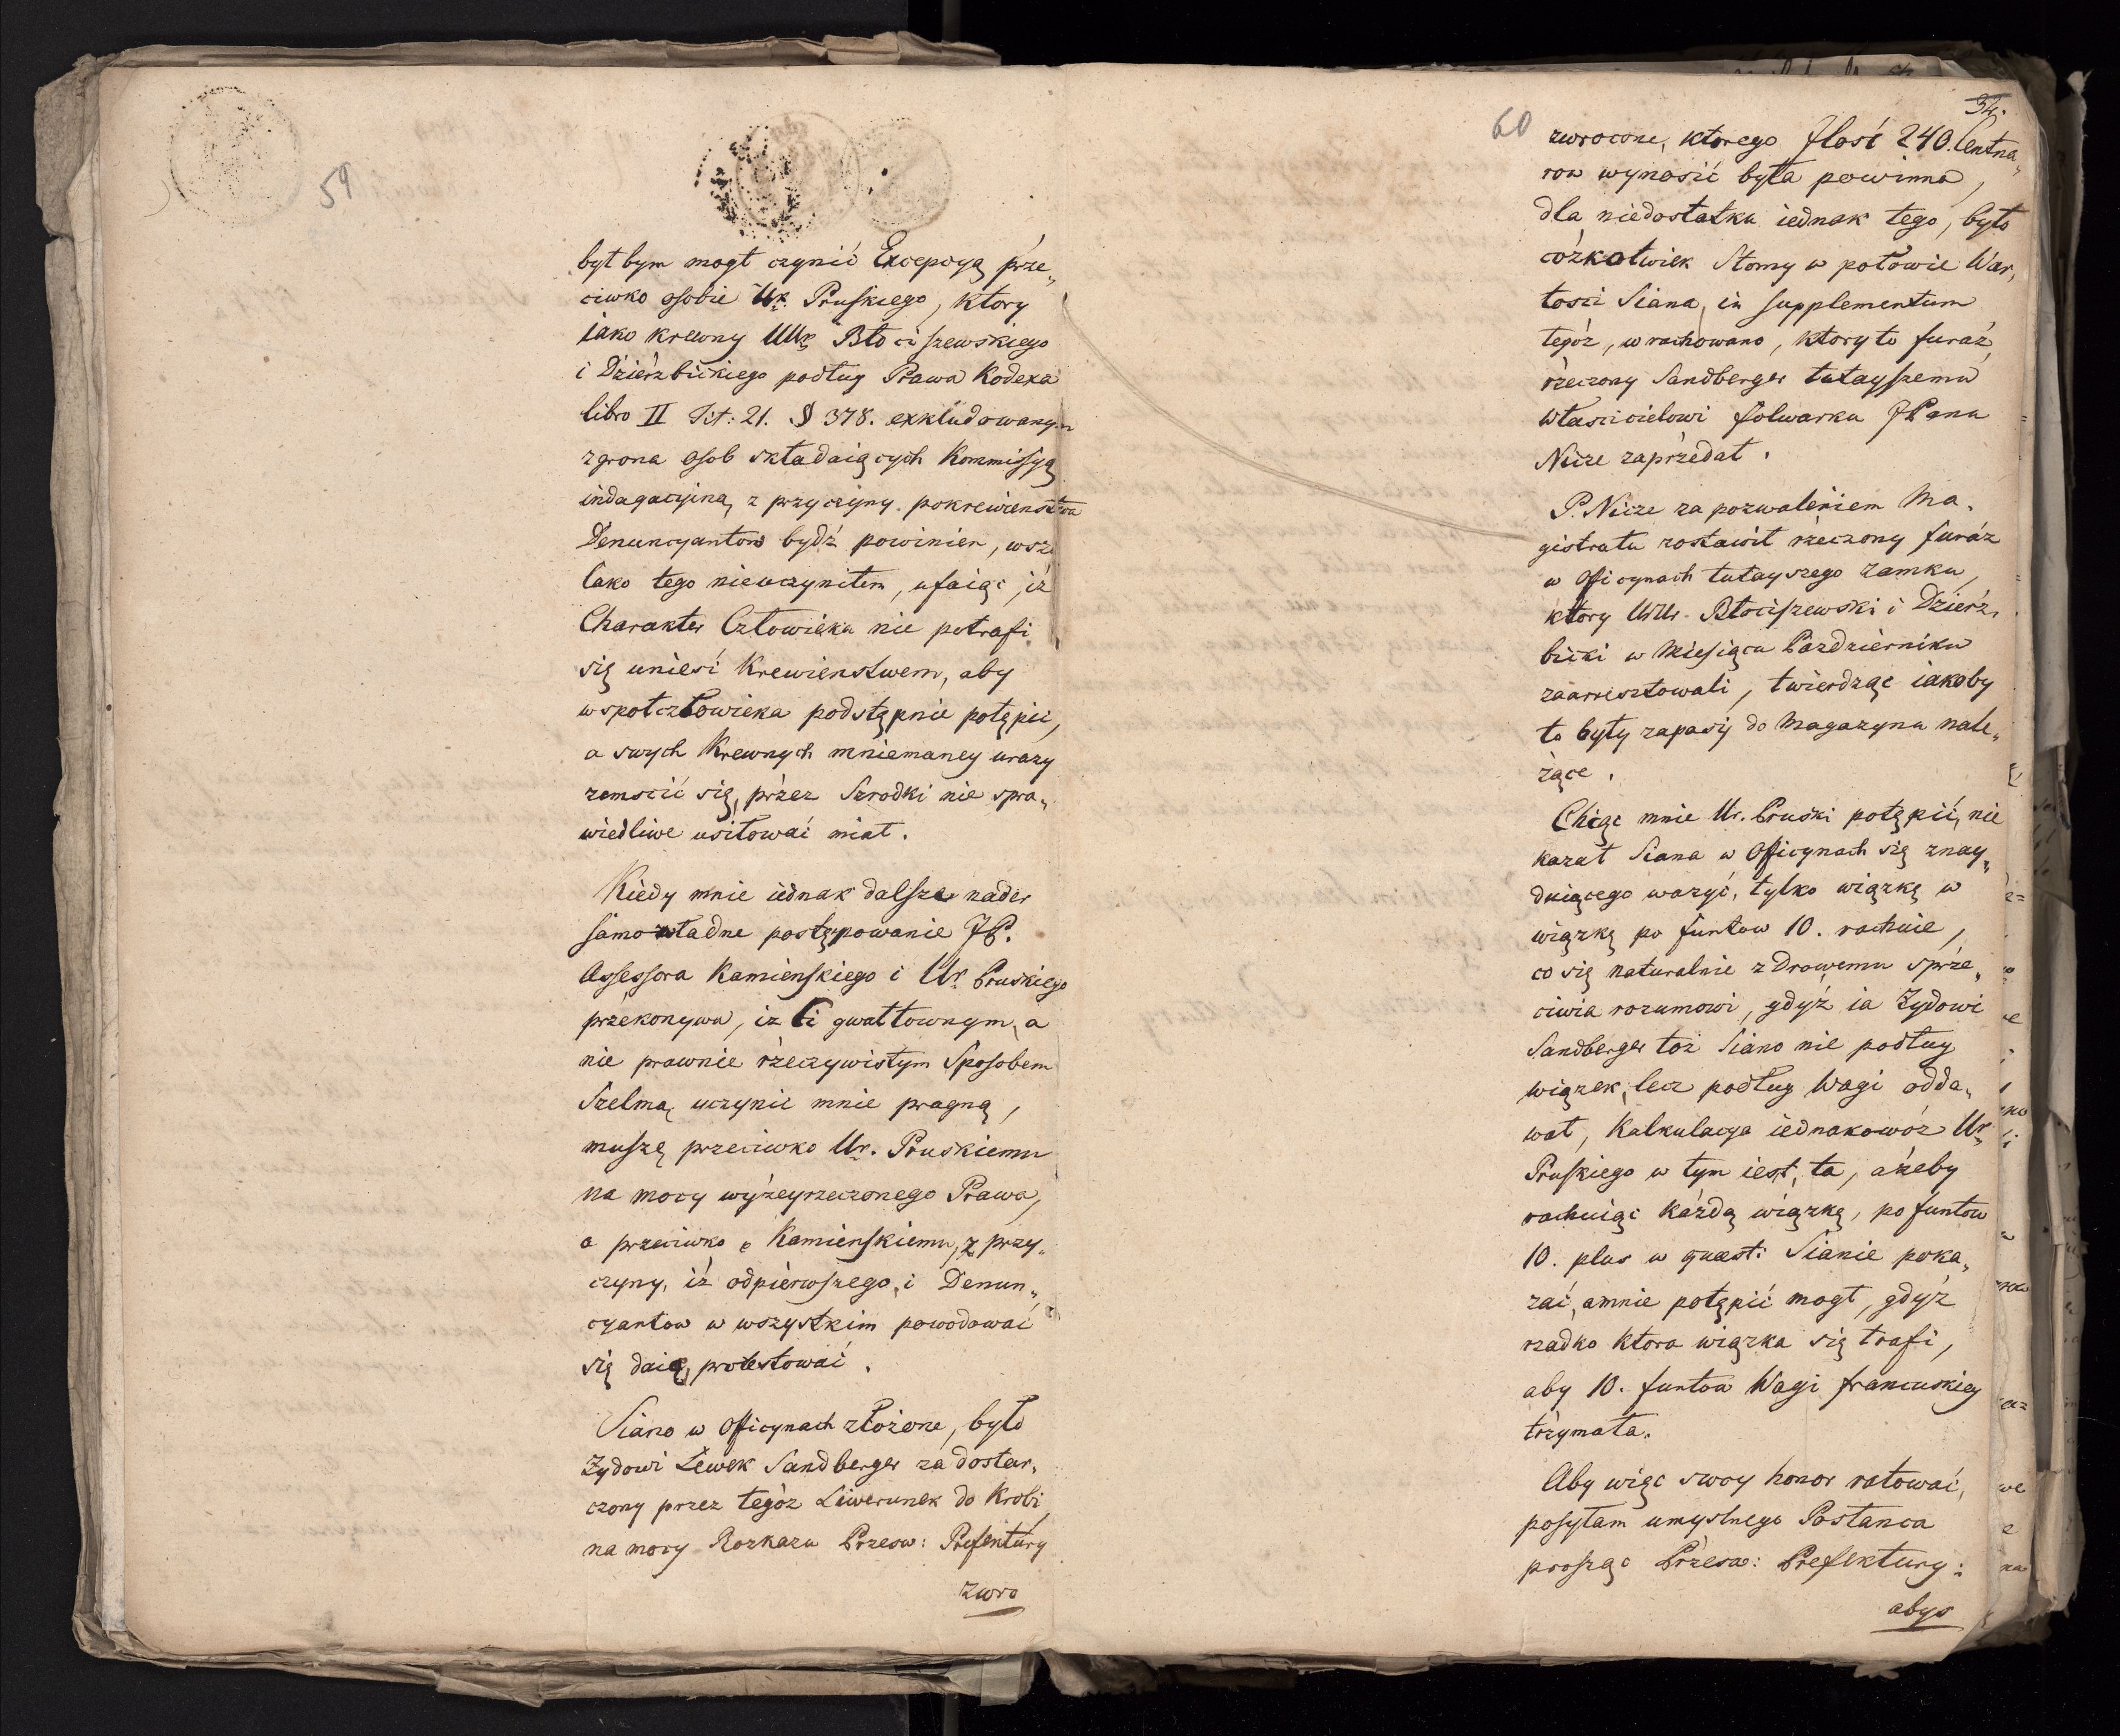 59
był bym mogł czynić Excepcyą prze„
ciwko osobie Ur. Pruskiego, ktory
iako krewny UUr. Błociszewskiego
i Dzierzbickiego podług Prawa Kodexa
libro II Tit: 21. § 378. exkludowanym
z grona osob składaiących Kommissyą
indagacyiną, z przyczyny pokrewienstwa
Denuncyantow bydź powinien, wsze
lako tego nieuczyniłem, ufaiąc, iż
Charakter Człowieka nie potrafi
się unieść Krewienstwem, aby
wspołczłowieka podstępnie potępić,
a swych Krewnych mniemaney urazy
zemscić się, przez Szrodki nie spra„
wiedliwe usiłować miał.
Kiedy mnie iednak dalsze nader
samowładne postępowanie JP.
Assessora Kamienskiego i Ur. Pruskiego
przekonywa, iz Ci gwałtownym, a
nie prawnie rzeczywistym Sposobem
Szelmą uczynić mnie pragną,
muszę przeciwko Ur. Pruskiemu
na mocy wyżeyrzeczonego Prawa,
a przeciwko Kamienskiemu, z przy„
czyny, iż odpierwszego, i Denun„
cyantow w wszystkim powodować
się daie, protestować.
Siano w Officynach złożone, było
Zydowi Lewek Sandberger za dostar„
czony przez tegóz Liwerunek do Krobi
na mocy Rozkazu Przesw: Prefektury
zwro
60
34.
zwrocone, ktorego Jlość 240. Centna„
row wynosić była powinna,
dla niedostatku iednak tego, było
cożkolwiek Słomy w połowie War„
tosci Siana, in supplementum
tegóz, wrachowano, ktoryto furaż
rzeczony Sandberger tutayszemu
Włascicielowi folwarku JPanu
Nitze zaprzedał.
P. Nitze za pozwaleniem Ma„
gistratu zostawił rzeczony furáz
w Officynach tutayszego Zamku,
ktory UrUr. Błociszewski i Dzierz„
bicki w Miesiącu Pazdzierniku
zaarresztowali, twierdząc iakoby
to były zapasy do Magazynu nale„
żące.
Chcąc mnie Ur. Pruski potępić, nie
kazał Siana w Officynach się znay„
duiącego wazyć, tylko wiązkę w
wiązkę po funtow 10. rachuie,
co się naturalnie zdrowemu sprze„
ciwia rozumowi, gdyż ia Zydowi
Sandberger toż Siano nie podług
wiązek, lecz podług Wagi odda„
wał, Kalkulacya iednakowóz Ur.
Pruskiego w tym iest, ta, ażeby
rachuiąc każdą wiązkę, po funtow
10. plus w quaest: Sianie poka„
zać, amnie potępić mogł, gdyż
rzadko ktora wiązka się trafi,
aby 10. funtow Wagi francuskiey
trzymała.
Aby więc swoy honor ratować,
posyłam umyslnego Posłanca
prosząc Przesw: Prefektury:
abys